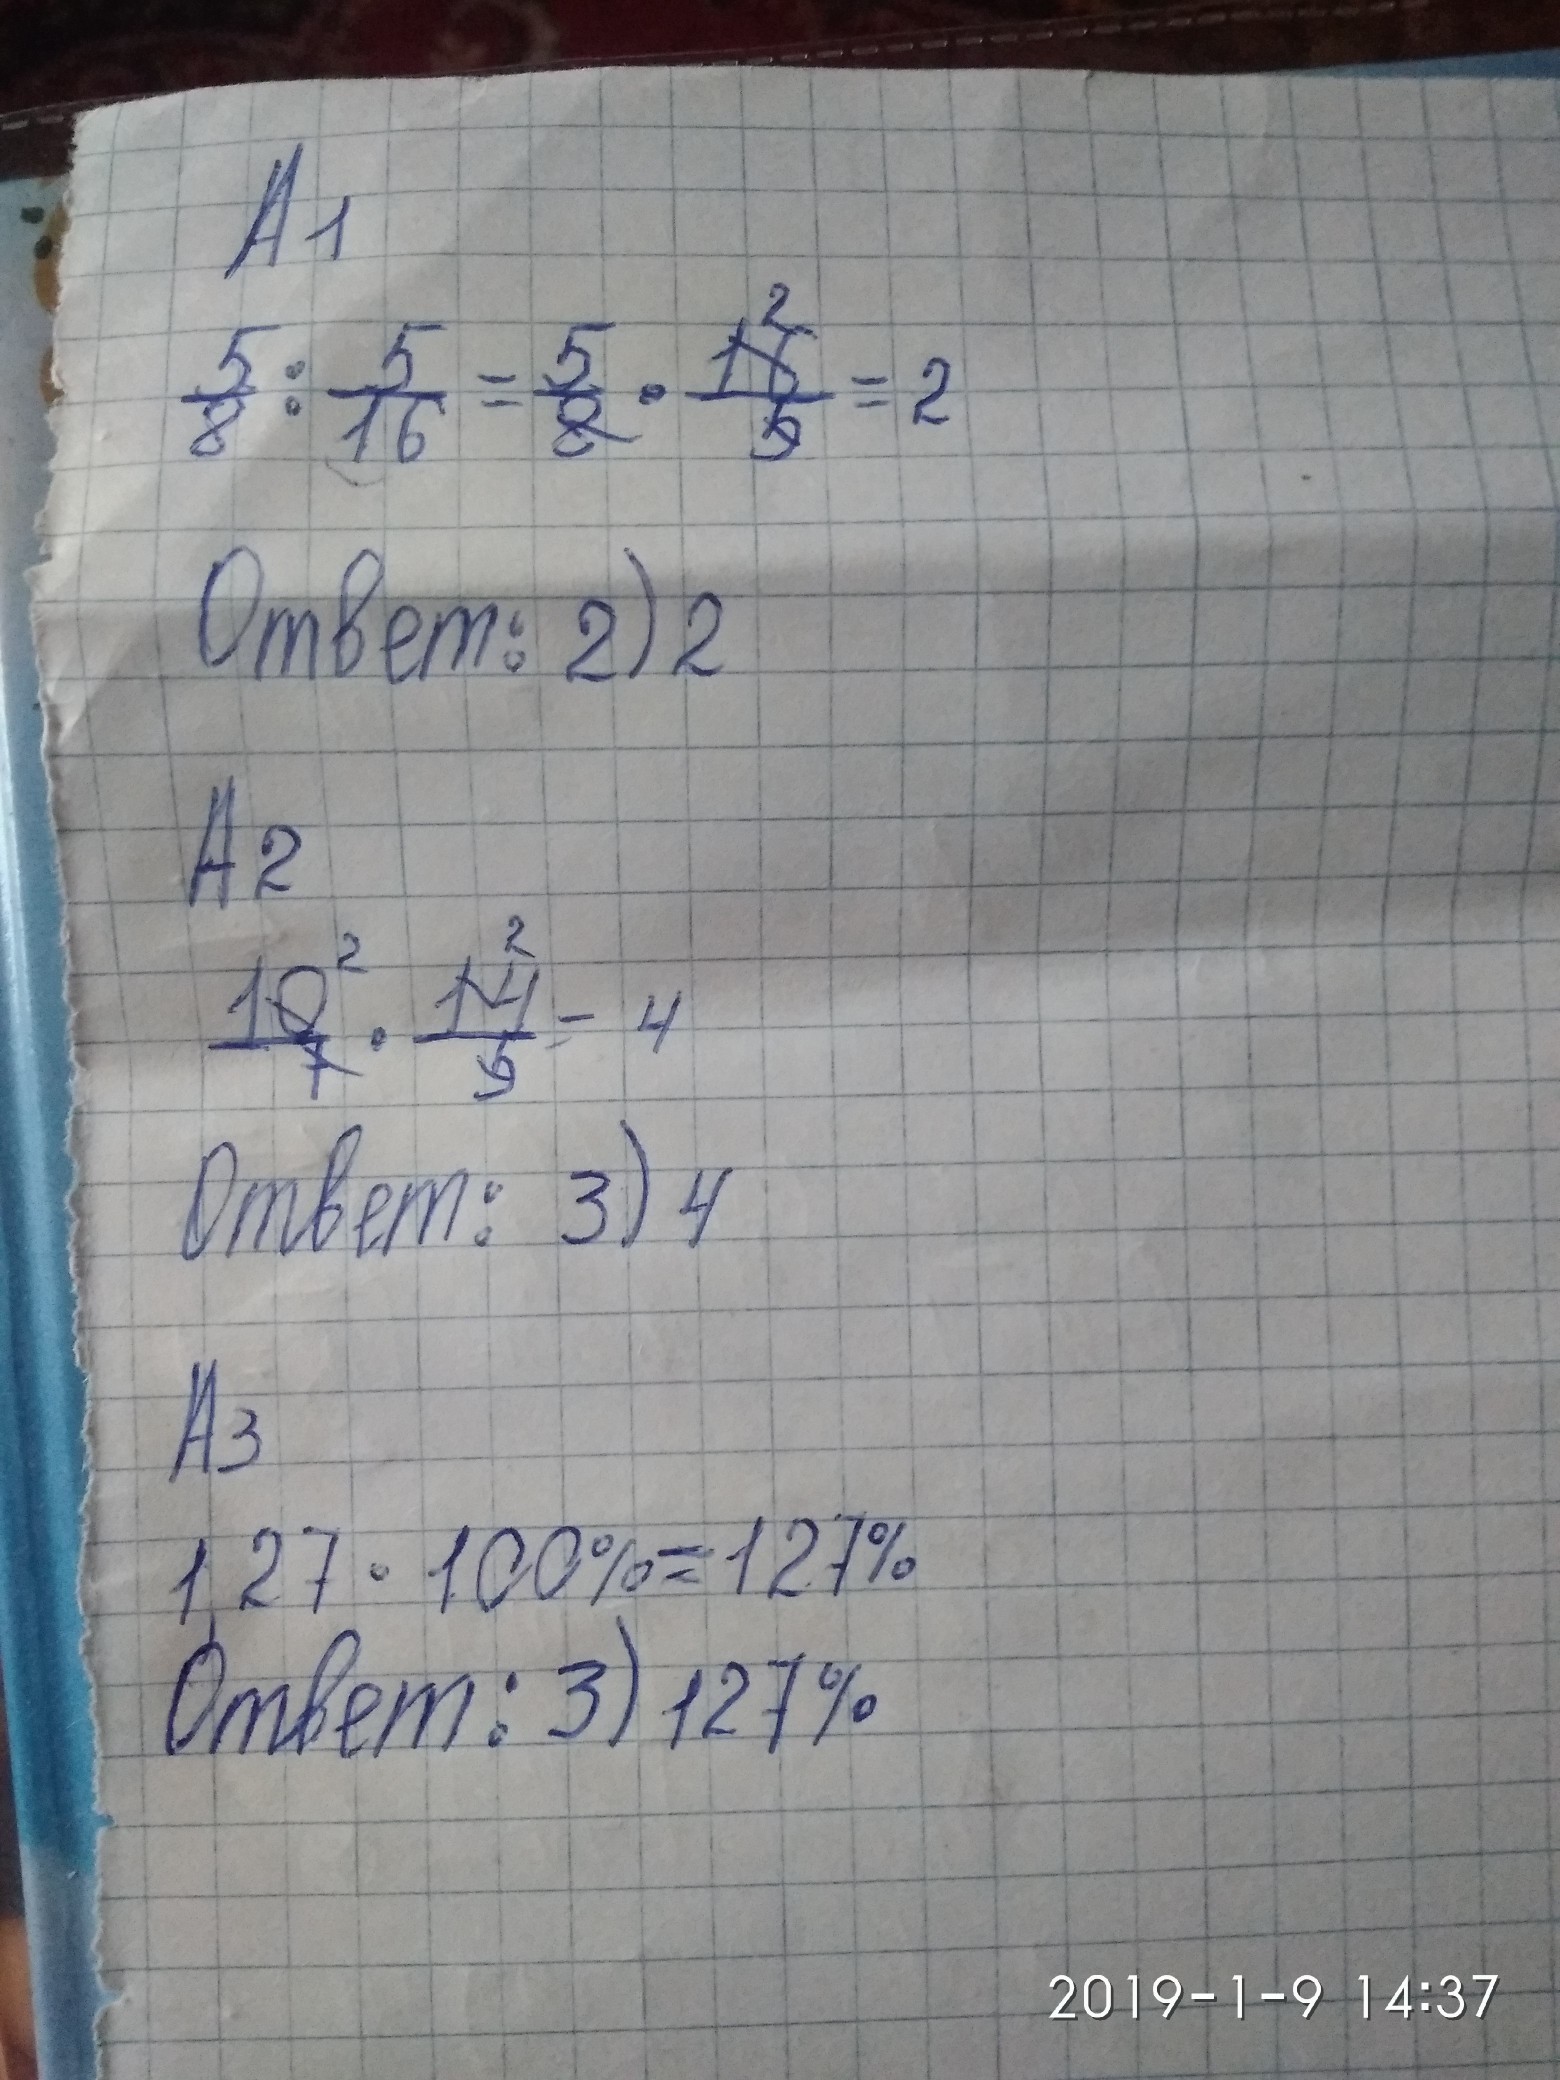 А1
5/8 : 5/16 = 5/8 · 16/5 2 = 2
Ответ: 2) 2
А2
10/7 2 · 14/5 2 = 4
Ответ: 3) 4
А3
1,27 · 100% = 127%
Ответ: 3) 127%
2019-1-9 14:37